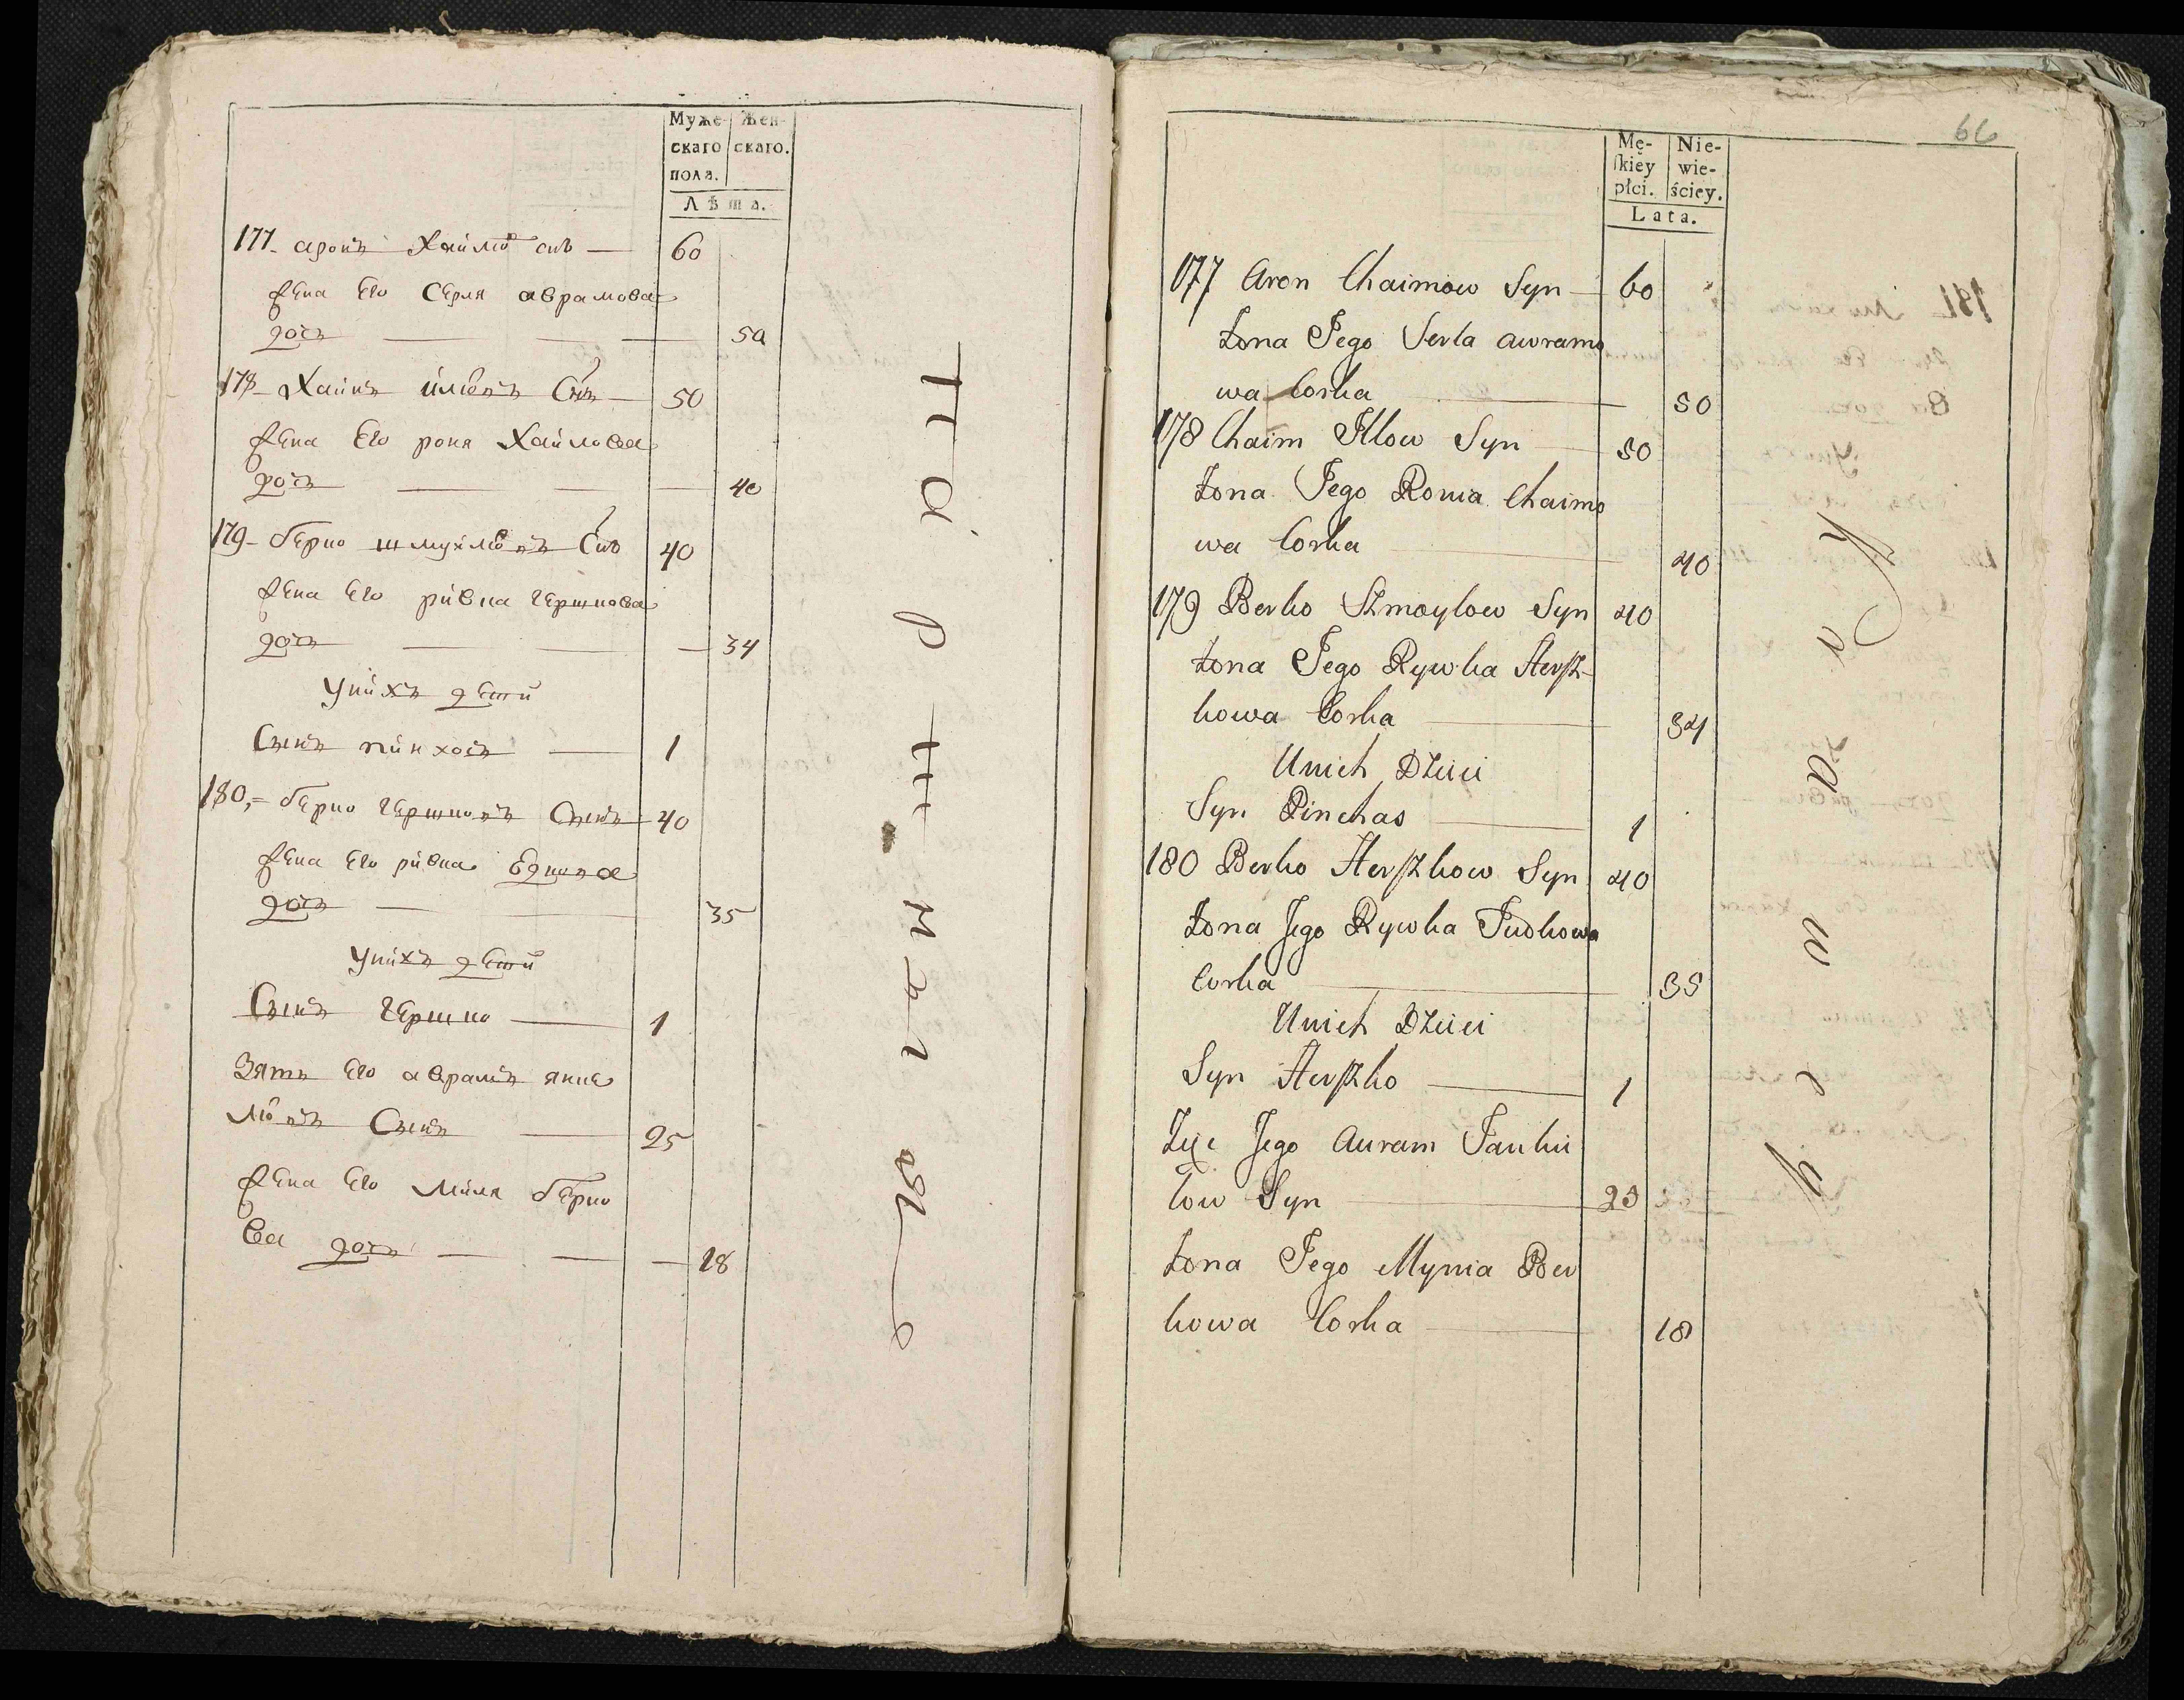 Муже-
скаго
пола.
Жен-
скаго.
Лѣта.
177 аронъ Хаимовъ снъ — 60
жена его Серля аврамова
дочь — 50
178 Хаимъ
снъ — 50
жена его роня Хаимова
дочь — 40
179 берко шмуйловъ снъ 40
жена его ривка гершкова
дочь — 34
у нихъ дети
Сынъ пинхосъ — 1
180 берко гершковъ Сынъ 40
жена его ривка
дочь — 35
у нихъ дети
Сынъ гершко — 1
Зять его аврамъ янке
ловъ Сынъ — 25
жена его миня берко
ва дочь — 18
66
Mę-
skiey
płci.
Nie-
wie-
ściey.
Lata.
177 Aron Chaimow Syn — 60
Żona Jego Serla Awramo
wa Corka — 50
178 Chaim Illow Syn — 50
Żona Jego Ronia Chaimo
wa Corka — 40
179 Berko Szmoylow Syn 40
Żona Jego Rywka Hersz-
kowa Corka — 34
Unich Dzieci
Syn Pinchas — 1
180 Berko Herszkow Syn 40
Żona Jego Rywka Judkowa
Corka — 35
Unich Dzieci
Syn Herszko — 1
Zięć Jego Awram Jankie
low Syn — 25
Żona Jego Mynia Ber
kowa Corka — 18